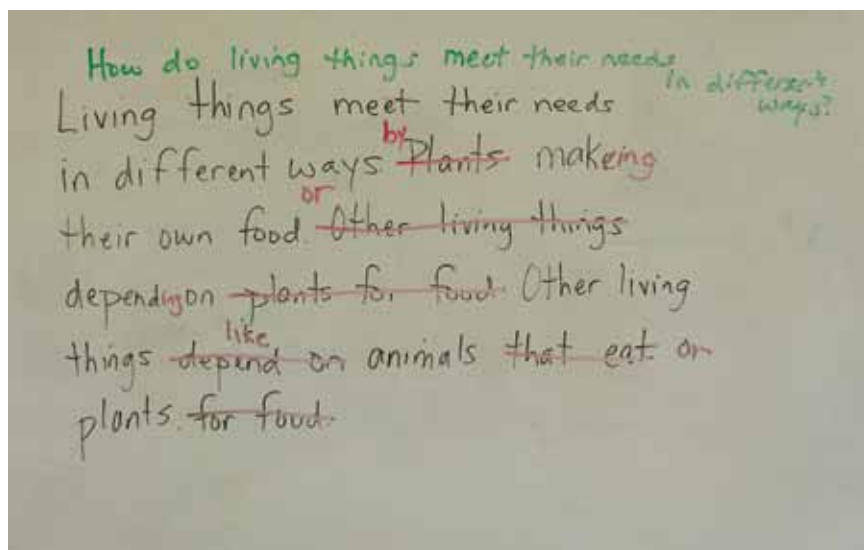 How do living things meet their needs
in different ways?
Living things meet their needs
by
in different ways Plants makeing
or
their own food. Other living things
dependingon plants for food. Other living
like
things depend on animals that eat or
plants. for food.